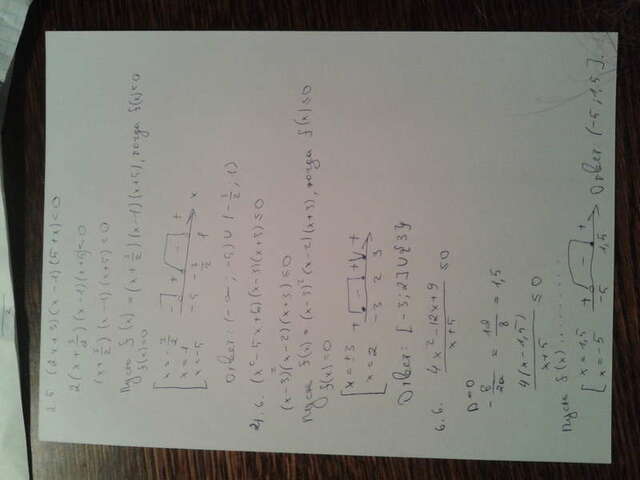 2.5. (2x+3)(x-1)(5+x)<0
2(x+3/2)(x-1)(x+5)<0
(x+1/2)(x-1)(x+5)<0
Пусть f(x) = (x+1/2)(x-1)(x+5), тогда f(x)<0
f(x)=0
[ x=-1/2
x=1
x=-5
- + - +
-5 -1/2 1 x
Ответ: (-∞; -5) ∪ (-1/2; 1)
4.6. (x²-5x+6)(x-3)(x+3)≤0
(x-3)²(x-2)(x+3)≤0
Пусть f(x) = (x-3)²(x-2)(x+3), тогда f(x)≤0
f(x)=0
[ x=±3
x=2
+ - + +
-3 2 3
Ответ: [-3; 2] ∪ {3}
6.6. 4x²-12x+9 / x+5 ≤0
D=0
-b/2a = 12/8 = 1,5
4(x-1,5) / x+5 ≤0
Пусть f(x) ..........
[ x=1,5
x=-5
+ - +
-5 1,5
Ответ (-5; 1,5].